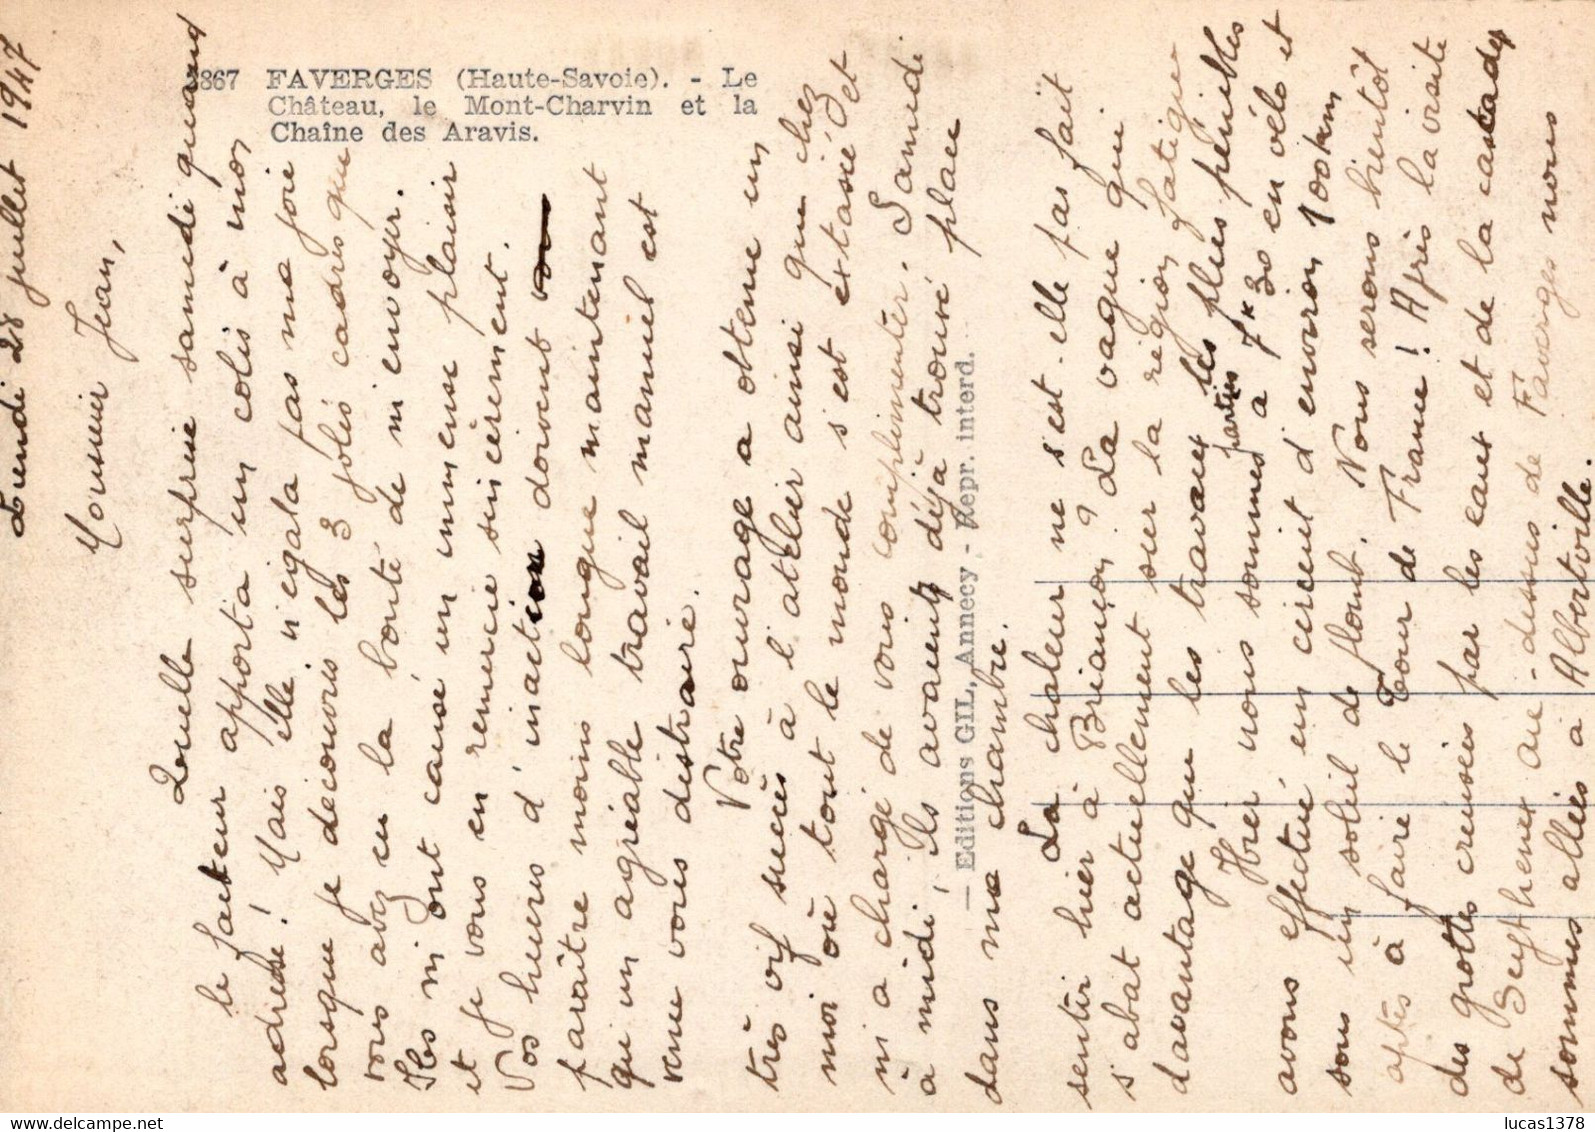 3867 FAVERGES (Haute-Savoie). - Le
Château, le Mont-Charvin et la
Chaîne des Aravis.
— Editions GIL, Annecy - Repr. interd.
Lundi 28 juillet 1947
Monsieur Jean,
Quelle surprise samedi quand
le facteur apporta un colis à mon
adresse ! Mais elle n'égala pas ma joie
lorsque je découvris les 3 jolis cadres que
vous avez eu la bonté de m'envoyer.
Ils m'ont causé un immense plaisir
et je vous en remercie sincèrement.
Vos heures d'inaction doivent
paraître moins longue maintenant
qu'un agréable travail manuel est
venu vous distraire.
Votre ouvrage a obtenu un
très vif succès à l'atelier ainsi que chez
moi où tout le monde s'est extasié et
m'a chargé de vous complimenter. Samedi
à midi, ils avaient déjà trouvé place
dans ma chambre.
La chaleur ne s'est-elle pas fait
sentir hier à Briançon ? La vague qui
s'abat actuellement sur la région fatigue
davantage que les travaux les plus pénibles
Hier nous sommes partis à 7h30 en vélo et
avons effectué un circuit d'environ 100km
sous un soleil de plomb. Nous serons bientôt
aptes à faire le Tour de France ! Après la visite
des grottes creusées par les eaux et de la cascade
de Seythenex au-dessus de Faverges nous
sommes allées à Albertville.
lucas1378